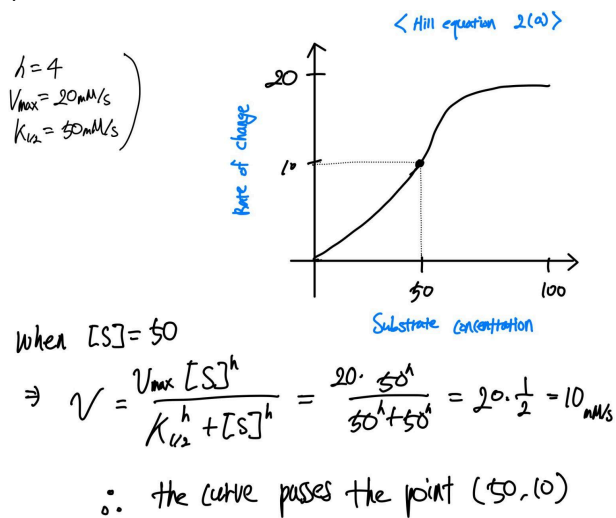 < Hill equation 2(a) >
h = 4
Vmax = 20 mM/s
K1/2 = 50 mM/s
20
10
Rate of change
50
100
Substrate concentration
when [S] = 50
⇒ V = Vmax [S]^h / K1/2^h + [S]^h = 20 · 50^h / 50^h + 50^h = 20 · 1/2 = 10 mM/s
∴ the curve passes the point (50, 10)